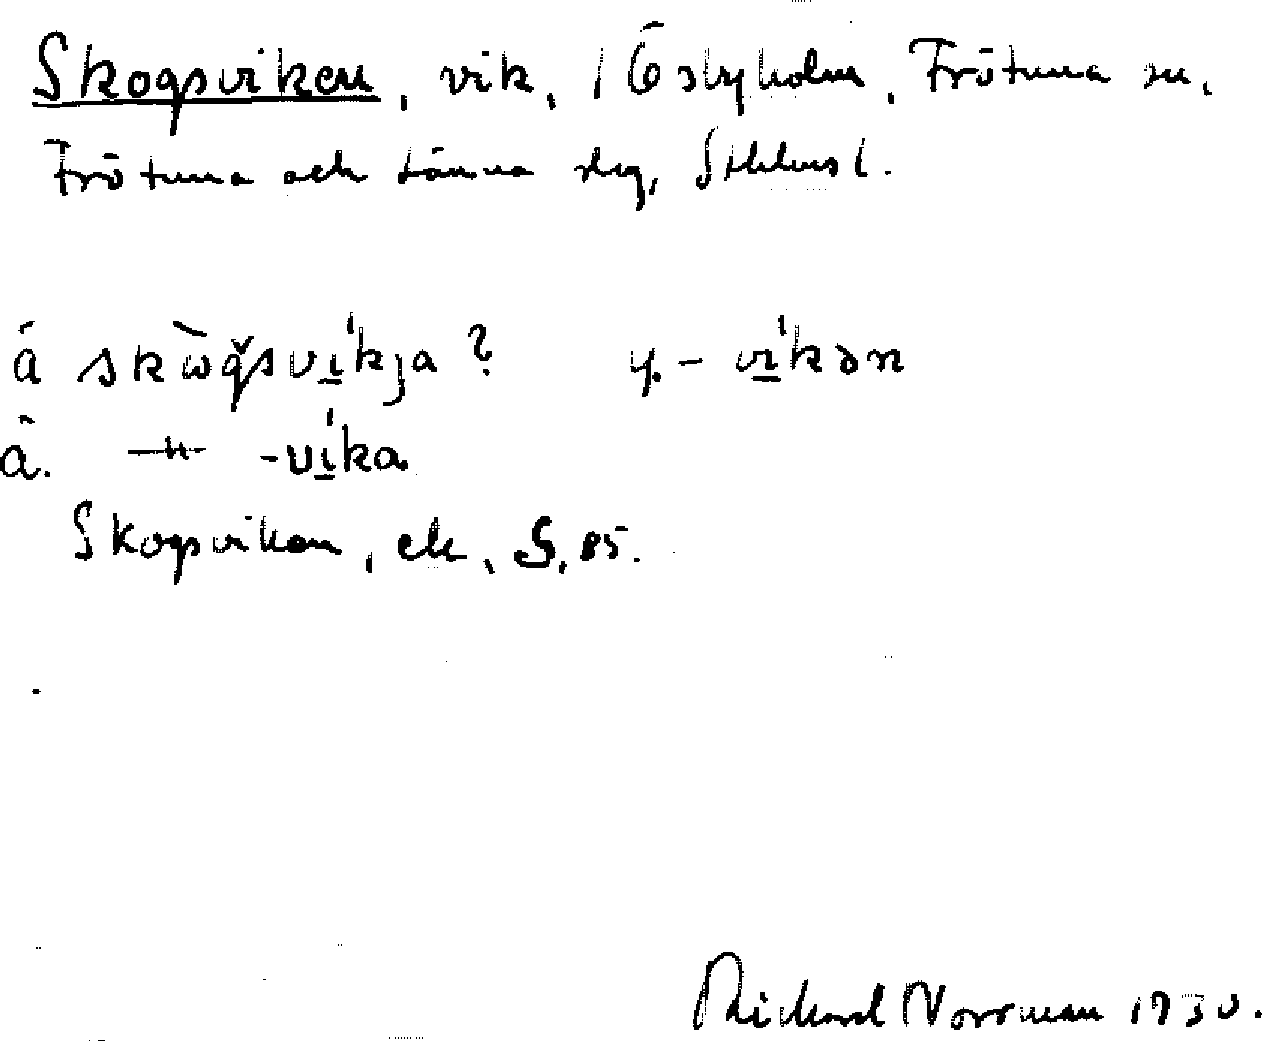 Skogsviken, vik, i Östyholm, Frötuna sn,
Frötuna och Länna slg, Sthlms l.
å skògsvíkja? y. - víkən
ä. -"- -víka
Skogsviken, ek, S. 85.
Rickard Norrman 1930.